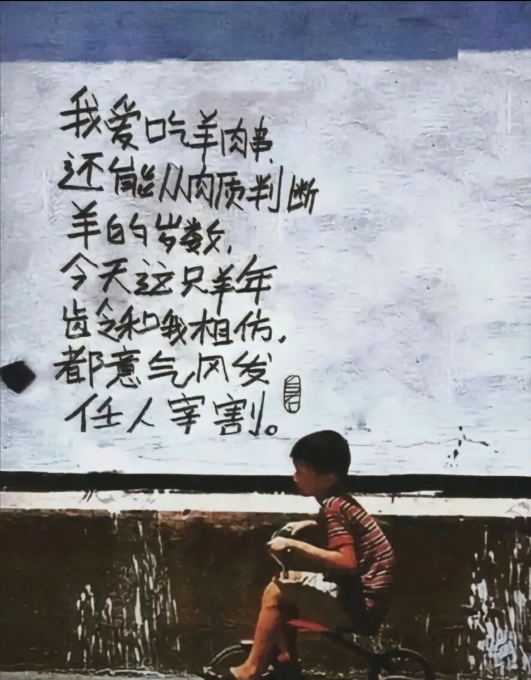 我爱吃羊肉串,
还能从肉质判断
羊的岁数,
今天这只羊年
齿令和我相仿,
都意气风发
任人宰割。